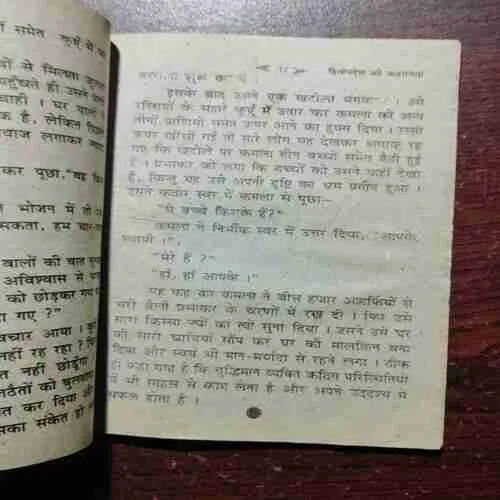 समेत कुएँ में
से मिलता जुलता
पहुँचते ही उसने
चाही । घर वालों
क है, लेकिन
वाज लगाकर
कर पूछा, "यह
भोजन में तो
सकता, हम चार
वालों की यह
अविश्वास से
को छोड़कर गया
गए ?"
चार आया ।
नहीं रह रहा ?
त नहीं छोड़ेगा
त कर दिया और
सका संकेत हो
करना शुरू कर दी
इसके बाद उसने एक खटोला मंगवाया । उसे
रस्सियों के सहारे कुएँ में उतार कर कमला को अन्य
तीनों प्राणियों समेत ऊपर आने का हुक्म दिया । रस्सी
ऊपर खींची गई तो सारे लोग यह देखकर अवाक् रह
गए कि खटोले पर कमला तीन बच्चों समेत बैठी हुई
है । प्रभाकर को लगा कि बच्चों को उसने कहीं देखा
है, किन्तु यह उसे अपनी दृष्टि का भ्रम प्रतीत हुआ ।
उसने कठोर स्वर में कमला से पूछा:-
"ये बच्चे किसके हैं?"
कमला ने निर्भीक स्वर में उत्तर दिया, "आपके,
स्वामी ।",
"मेरे हैं ?"
"हाँ, हाँ आपके ।"
यह कह कर कमला ने बीस हजार अशर्फियों से
भरी थैली प्रभाकर के चरणों में रख दी । फिर उसे
सारा किस्सा ज्यों का त्यों सुना दिया । उसने उसे घर
की सारी चाबियाँ सौंप कर घर की मालकिन बना
दिया और स्वयं भी मान-मर्यादा से रहने लगा । ठीक
ही कहा गया है कि बुद्धिमान व्यक्ति कठिन परिस्थितियों
में भी साहस से काम लेता है और अपने उद्देश्य में
सफल होता है ।